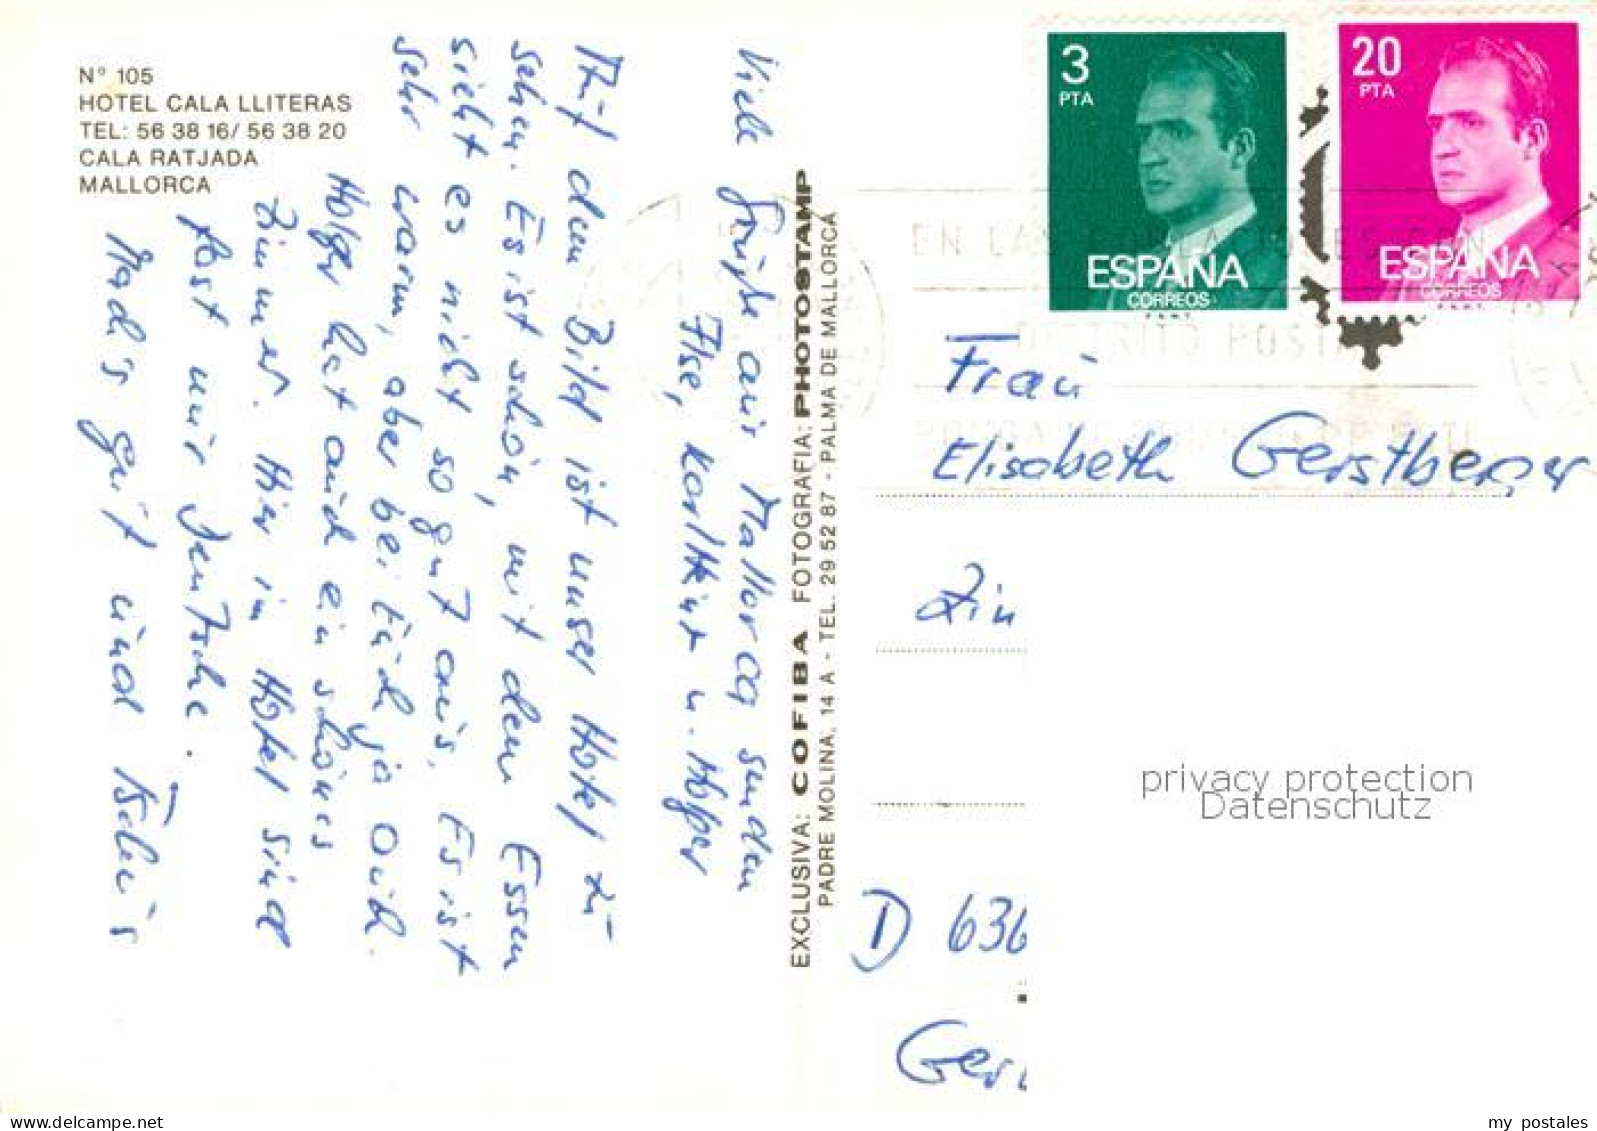 N° 105
HOTEL CALA LLITERAS
TEL: 56 38 16/ 56 38 20
CALA RATJADA
MALLORCA
Viele Grüße aus Mallorca senden
Ilse, Karlheinz u. Holger
Auf dem Bild ist unser Hotel zu
sehen. Es ist schön, mit dem Essen
sieht es nicht so gut aus. Es ist
sehr warm, aber bei Euch ja auch.
Holger hat auch ein schönes
Zimmer. Hier im Hotel sind
fast nur Deutsche.
Mach's gut und Tschüs
EXCLUSIVA: COFIBA FOTOGRAFIA: PHOTOSTAMP
PADRE MOLINA, 14 A - TEL. 29 52 87 - PALMA DE MALLORCA
3
PTA
ESPAÑA
CORREOS
F.N.M.T.
20
PTA
ESPAÑA
CORREOS
F.N.M.T.
DISTRITO POSTAL
Frau
Elisabeth Gerstberger
D 636
privacy protection
Datenschutz
my postales